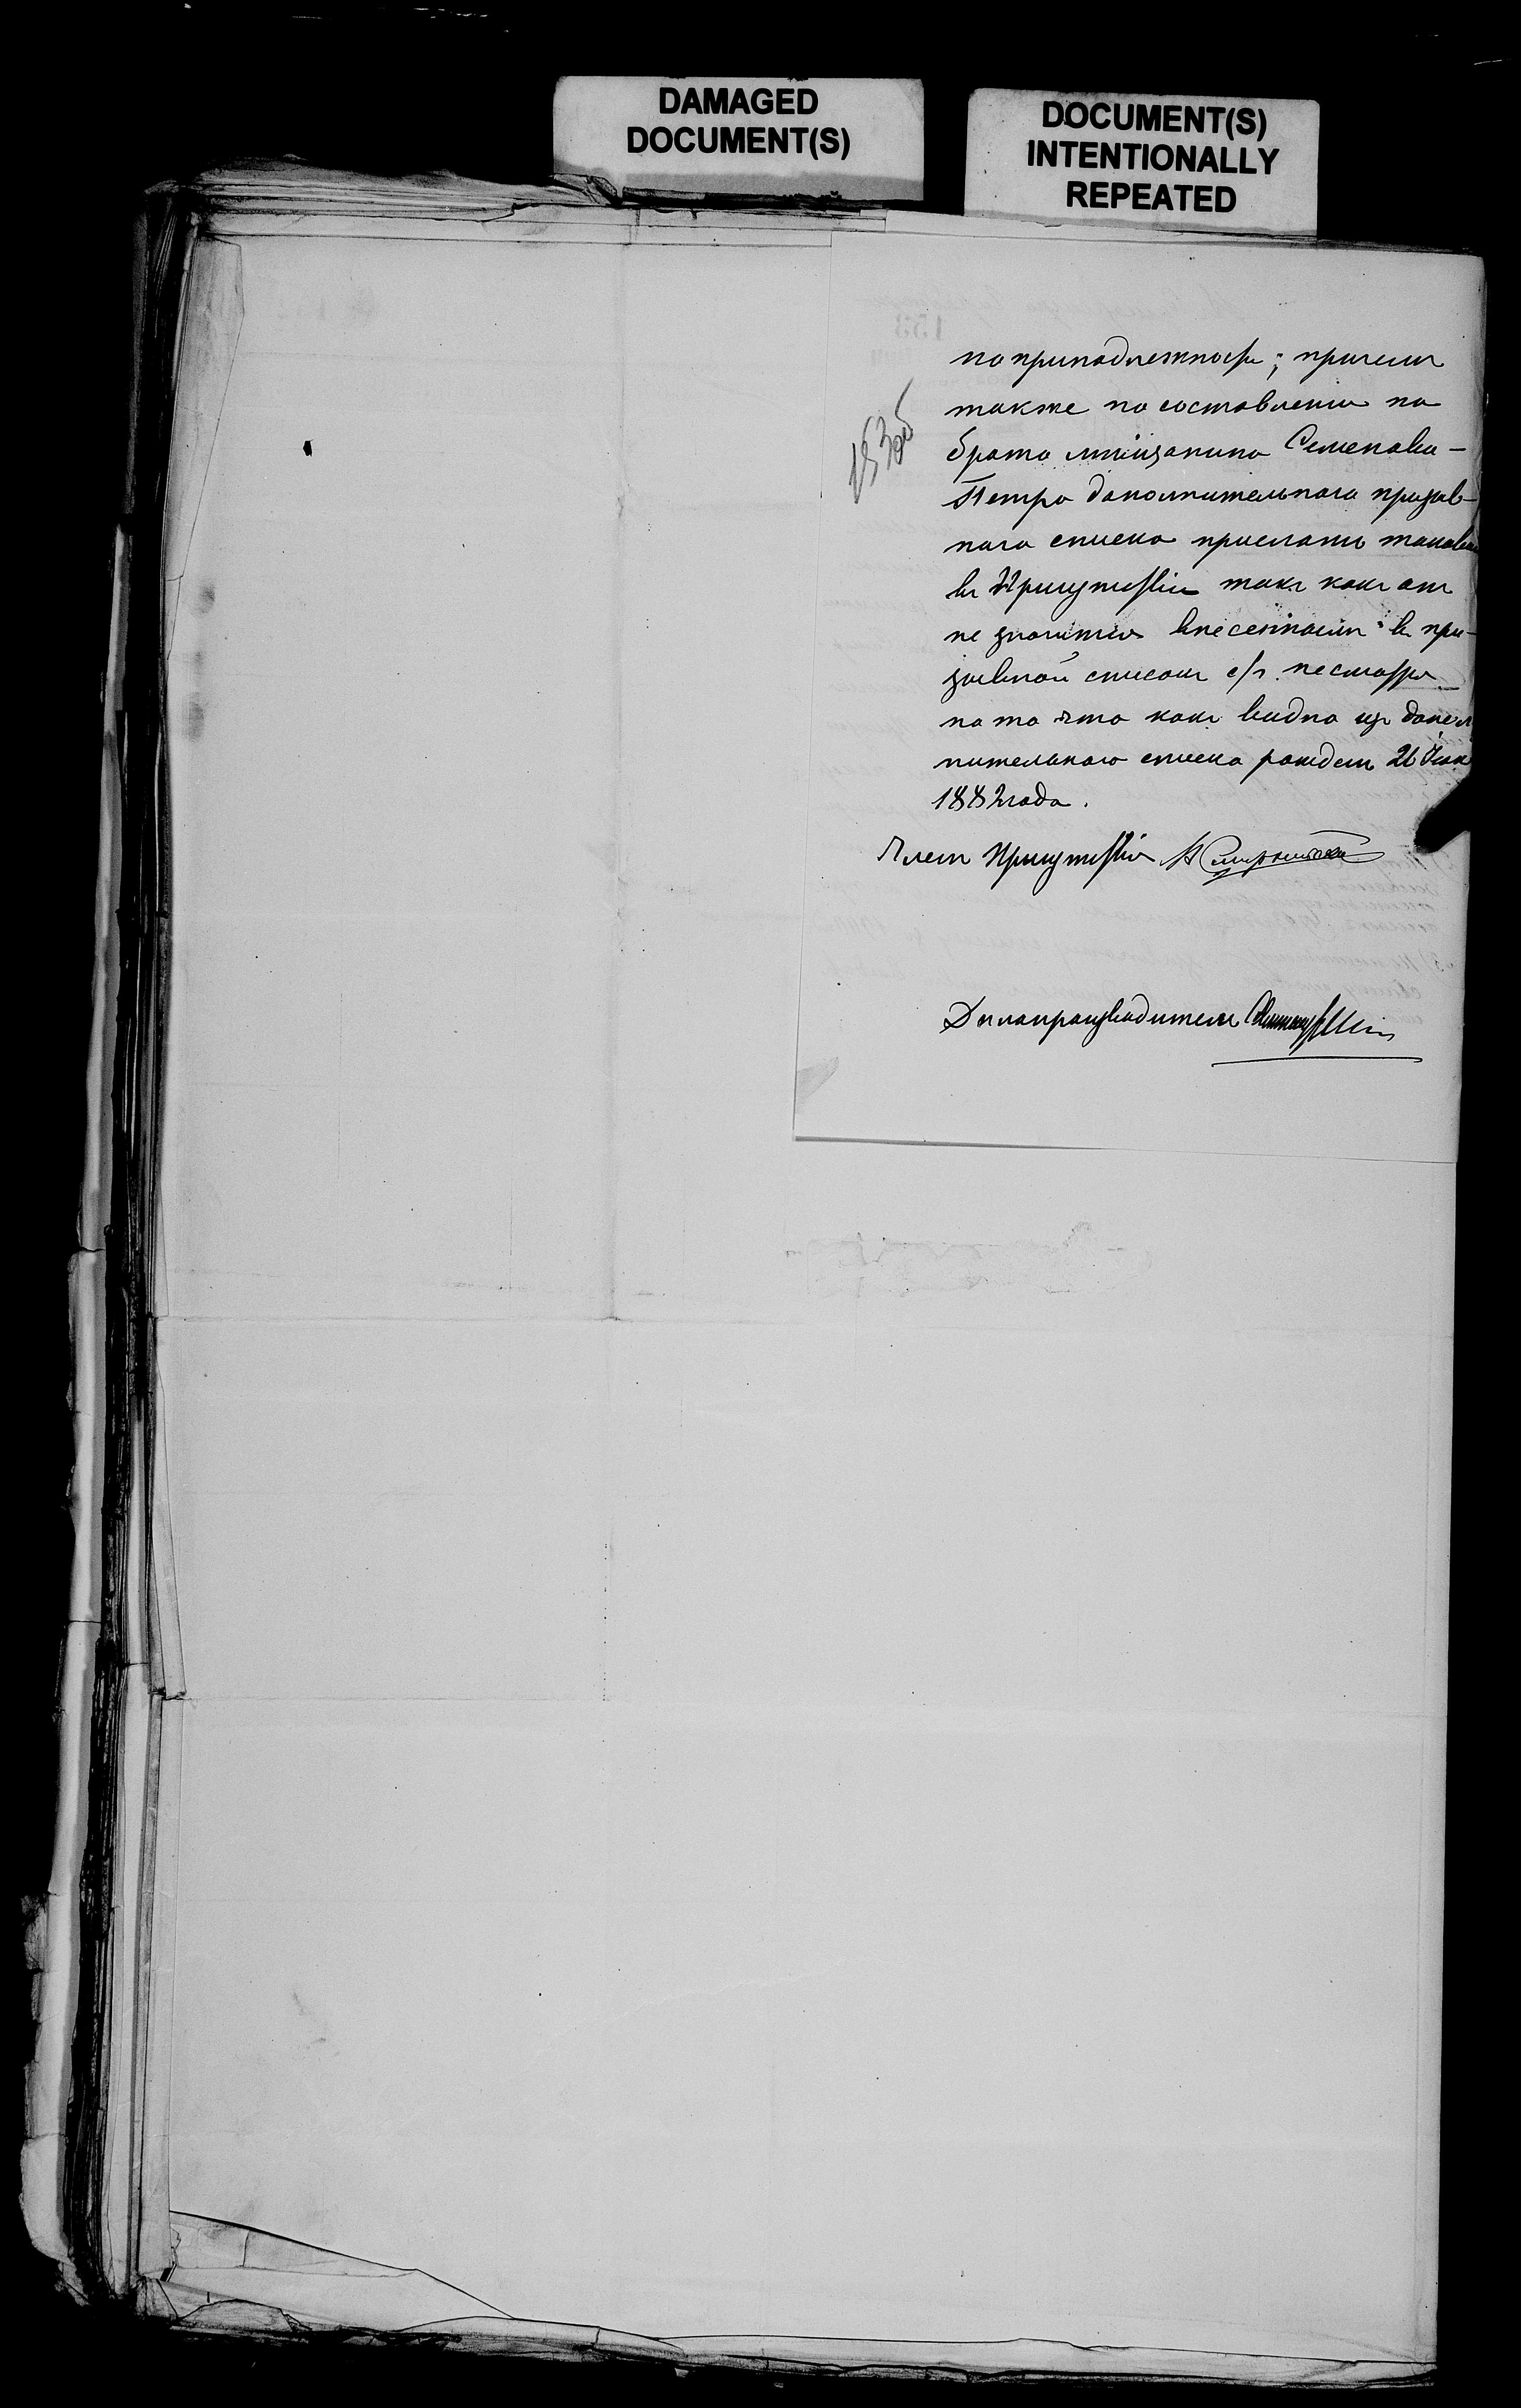 DAMAGED
DOCUMENT(S)
DOCUMENT(S)
INTENTIONALLY
REPEATED
153об
по принадлежности; причемъ
также по составленіи на
брата мѣщанина Семенова –
Петра дополнительнаго призыв-
наго списка прислать таковой
въ Присутствіе такъ какъ онъ
не значится внесеннымъ въ при-
зывной списокъ с/г. несмотря
на то что какъ видно изъ допол
нительнаго списка рожденъ 26
1882 года.
Членъ Присутствія
Дѣлопроизводитель